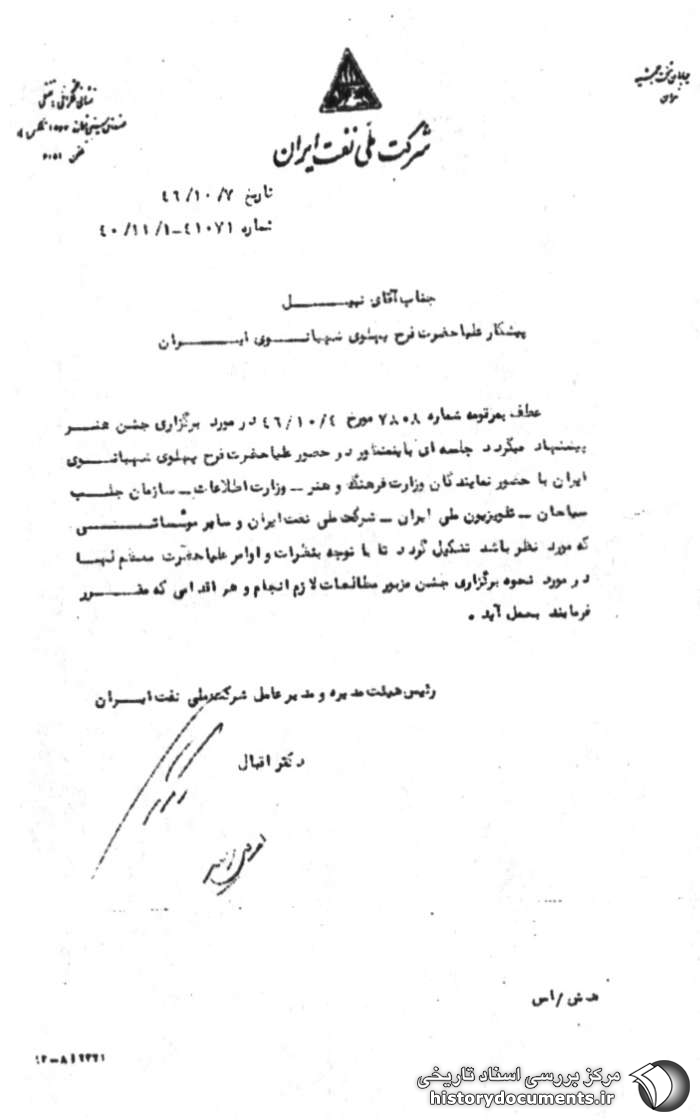 خیابان تخت جمشید
تهران
نشانی تلگرافی: نفتی
صندوق پستی
تلفن ۶۱۵۱
شرکت ملّی نفت ایران
تاریخ ٤٦/١٠/٧
شماره ٤١٠٧١-٤٠/١١/١
جناب آقای نبیـــل
پیشکار علیاحضرت فرح پهلوی شهبانـــوی ایـــران
عطف بمرقومه شماره ٧٨٠٨ مورخ ٤٦/١٠/٤ در مورد برگزاری جشن هنـر
پیشنهاد میگردد جلسه ای باینمنظور در حضور علیاحضرت فرح پهلوی شهبانـوی
ایران با حضور نمایندگان وزارت فرهنگ و هنر ـ وزارت اطلاعات ـ سازمان جلـب
سیاحان ـ تلویزیون ملی ایران ـ شرکت ملی نفت ایران و سایر موسساتـــی
که مورد نظر باشد تشکیل گردد تا با توجه بنظرات و اوامر علیاحضرت معظم لهـا
در مورد نحوه برگزاری جشن مزبور مطالعات لازم انجام و هر اقدامی که مقـــرر
فرمایند بعمل آید .
رئیس هیئت مدیره و مدیر عامل شرکت ملی نفت ایـــران
دکتر اقبال
هـ ش / اس
مرکز بررسی اسناد تاریخی
historydocuments.ir